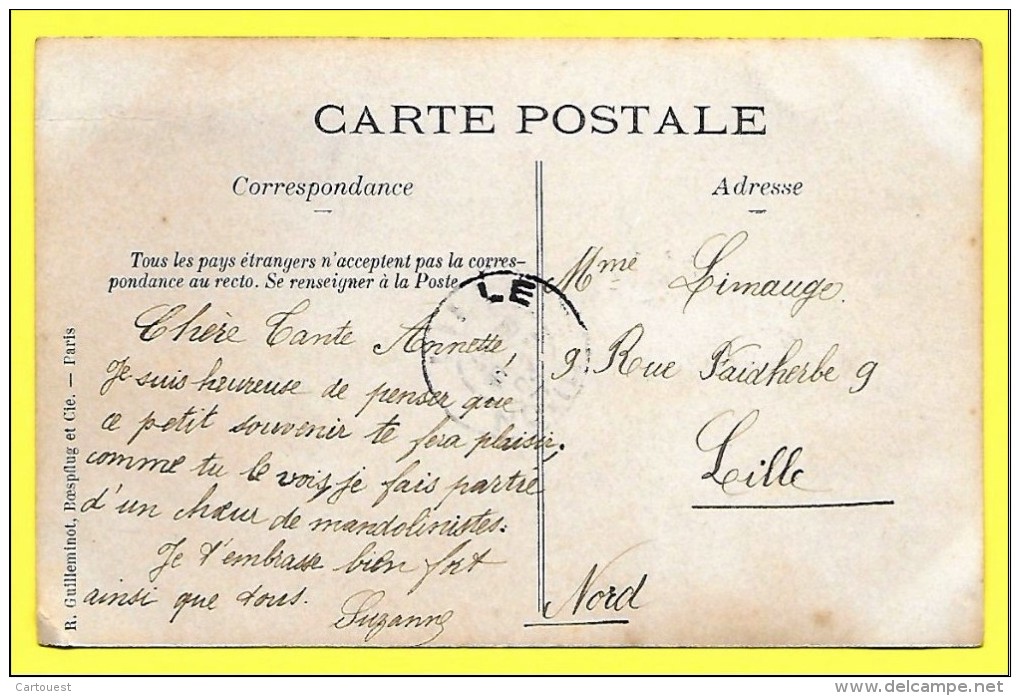 CARTE POSTALE
Correspondance
Adresse
Tous les pays étrangers n'acceptent pas la corres-
pondance au recto. Se renseigner à la Poste.
Chère Tante Annette,
Je suis heureuse de penser que
ce petit souvenir te fera plaisir;
comme tu le vois, je fais partie
d'un chœur de mandolinistes.
Je t'embrasse bien fort
ainsi que tous.
Suzanne
Mme Limauge.
9. Rue Faidherbe 9
Lille
Nord
LE
R. Guilleminot, Bœspflug et Cie. — Paris
Cartouest
delcampe.net